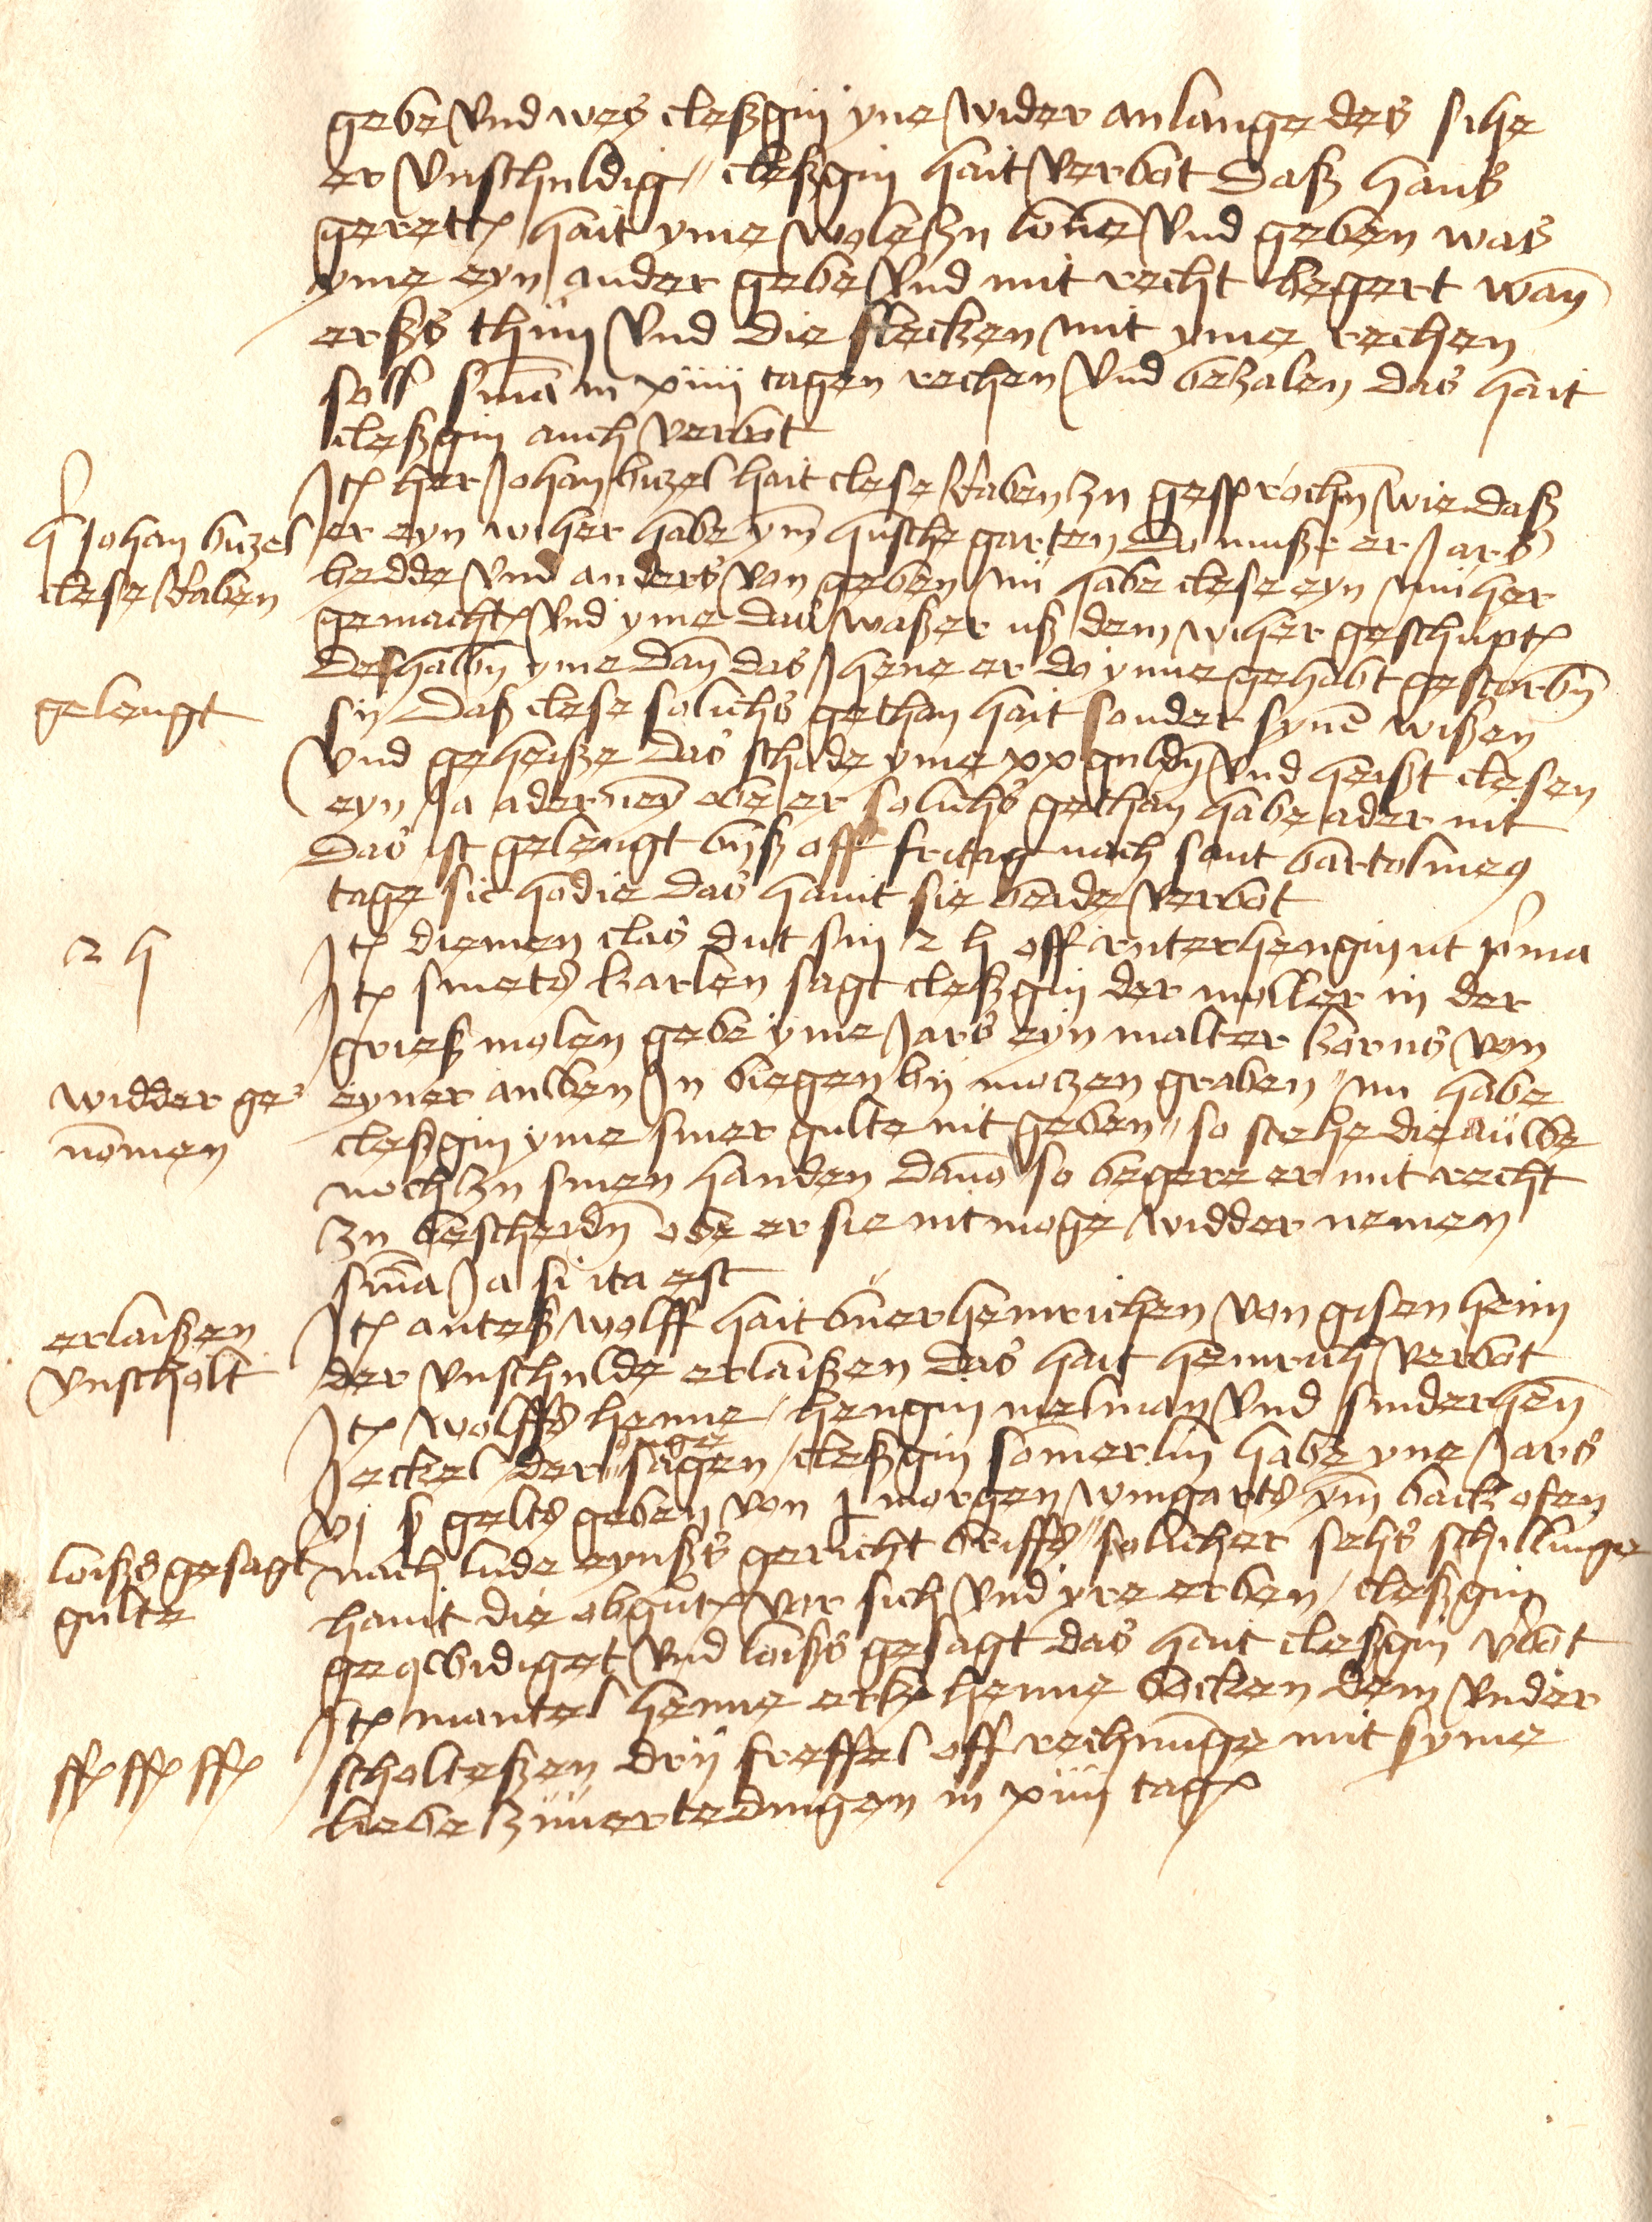 gebe vnd wes cleßgin yne wider anlange des sihe
er vnschuldig // cleßgin hait verbot daß Hans
gerett hait yme wole zu lone vnd geben was
yme eyn ander gebe vnd mit recht begert wan
erßs thun vnd die stecken mit yme rechen
soll sma in xiiii tagen rechen vnd bezalen das hait
cleßgin auch verbot
h Johan buzel
clese Raben
Jt her Johan buzel hait clese Raben zu gesprochn wie daß
er eyn wiher habe ym husche garten Do muße er Jars
bedde vnd anders von geben nu habe clese eyn wiher
gemacht vnd yme das waßer uß dem wiher geschupt
Deshalbn yme dan das Jhene er do ynne gehabt gestorbn
gelengt
sin Daß clese solichs gethan hait sonder syne wißen
vnd geheiße Das schade yme xx guldn vnd heißt clesen
eyn Ja ader neyn obe er solichs gethan habe ader nit
Das ist gelengt bijß off fritag nach sant bartolmeus
tage sic hodie das haint sie beide verbot
2 h
Jt diemen clas dut sin 2 h off ruterhengin ut prima
Jt smets karlen sagt cleßgin der moller in der
grieß molen gebe yme Jars eyn malter korns von
widder ge
nomen
eyner auwen Jn biegen bij motzen graben // nu habe
cleßgin yme siner gulte nit geben // so stehe die auwe
noch zu sinen handen dauon so begere er mit recht
zu bescheidn obe er sie nit moge widder nemen
sma Ja si ita est
erlaißen
vnscholt
Jt anteß wolff hait buerheinrichen von gisenheim
der vnschulde erlaißen das hait heinrich verbot
Jt wolffs henne / hengin melman vnd sinderhen
Jeckel der Junge sagen / cleßgin somerlin habe yne Jars
vj ß gelts geben von j morgen wingarts ym backofen
loißs gesagt
gulte
nach lude eynßs gericht briffs // solicher sehs schillinge
haint die obgut vor sich vnd yre erben / cleßgin
geqwidiget vnd loißs gesagt das hait cleßgin vbot
ff ff ff
Jt mantel henne erk henne bocken dem vnder
scholteßen drij freffel off rechnunge mit syme
liebe zuuertedingen in xiiii tag